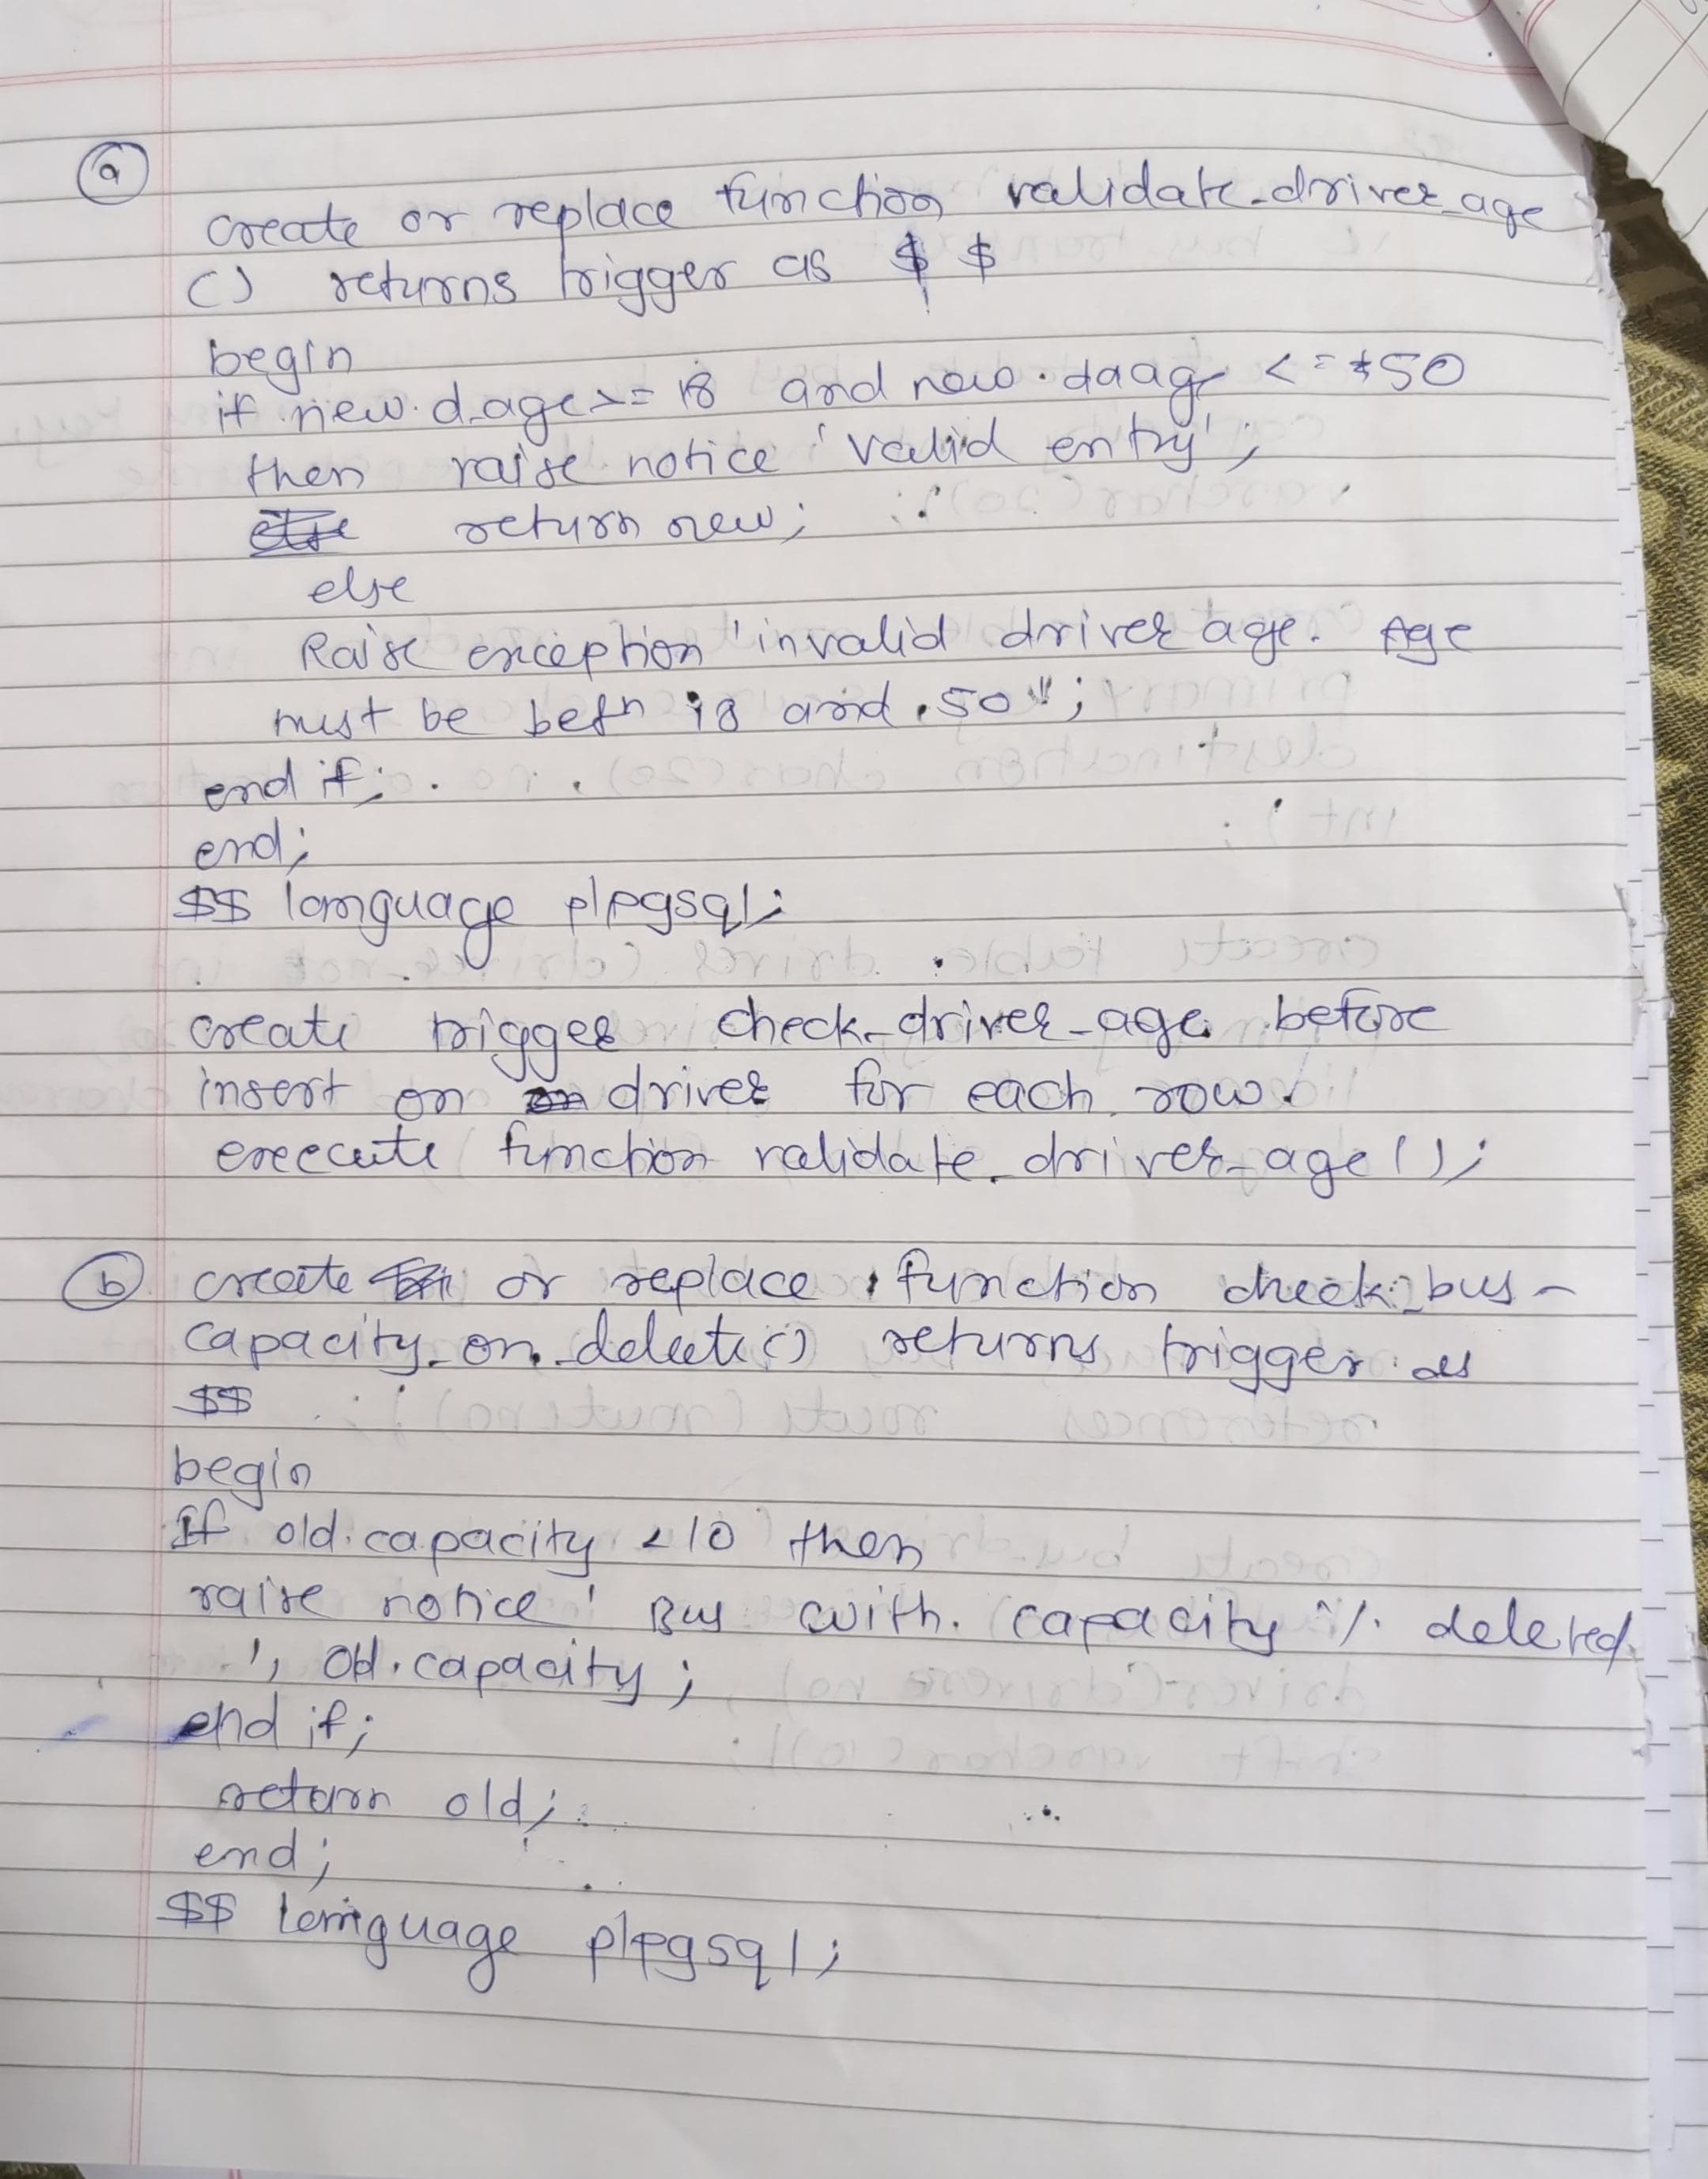 a
create or replace function validate_driver_age
() returns trigger as $ $
begin
if new.d_age >= 18 and new.daage <= 50
then raise notice 'valid entry';
return new;
else
Raise exception 'invalid driver age. Age
must be betn 18 and 50';
end if;
end;
$$ language plpgsql;
create trigger check_driver_age before
insert on driver for each row
execute function validate_driver_age();
b create or replace function check_bus_
capacity_on_delete() returns trigger as
$$
begin
If old.capacity < 10 then
raise notice ' Bus with capacity % deleted
', old.capacity;
end if;
return old;
end;
$$ language plpgsql;